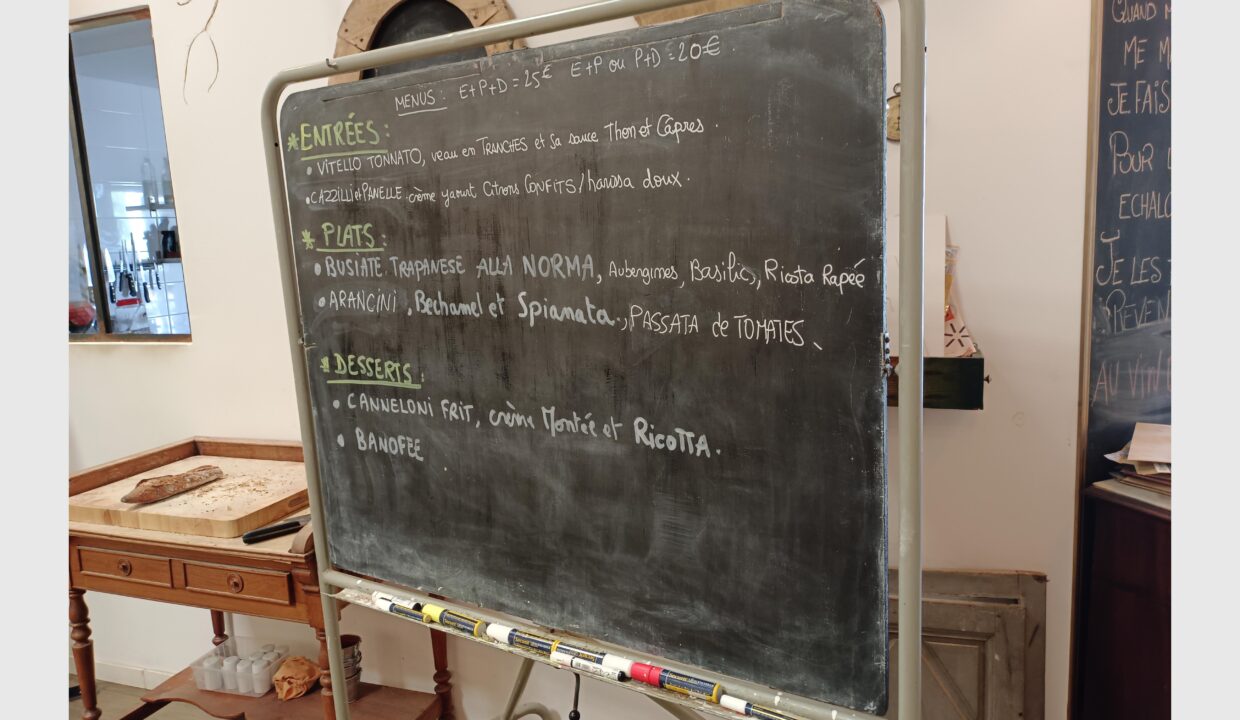 MENUS : E+P+D = 25€ E+P ou P+D = 20€.
* ENTRÉES :
• VITELLO TONNATO, veau en TRANCHES et sa sauce Thon et Câpres.
• CAZZILLI et PANELLE. crème yaourt Citrons CONFITS/harissa doux.
* PLATS :
• BUSIATE TRAPANESE ALLA NORMA, Aubergines, Basilic, Ricota Rapée
• ARANCINI, Bechamel et Spianata, PASSATA de TOMATES.
* DESSERTS :
• CANNELONI FRIT, crème Montée et RICOTTA.
• BANOFEE.
QUAND
ME
JE FAIS
POUR
ECHALO
JE LES
PREVEN
AU VIN